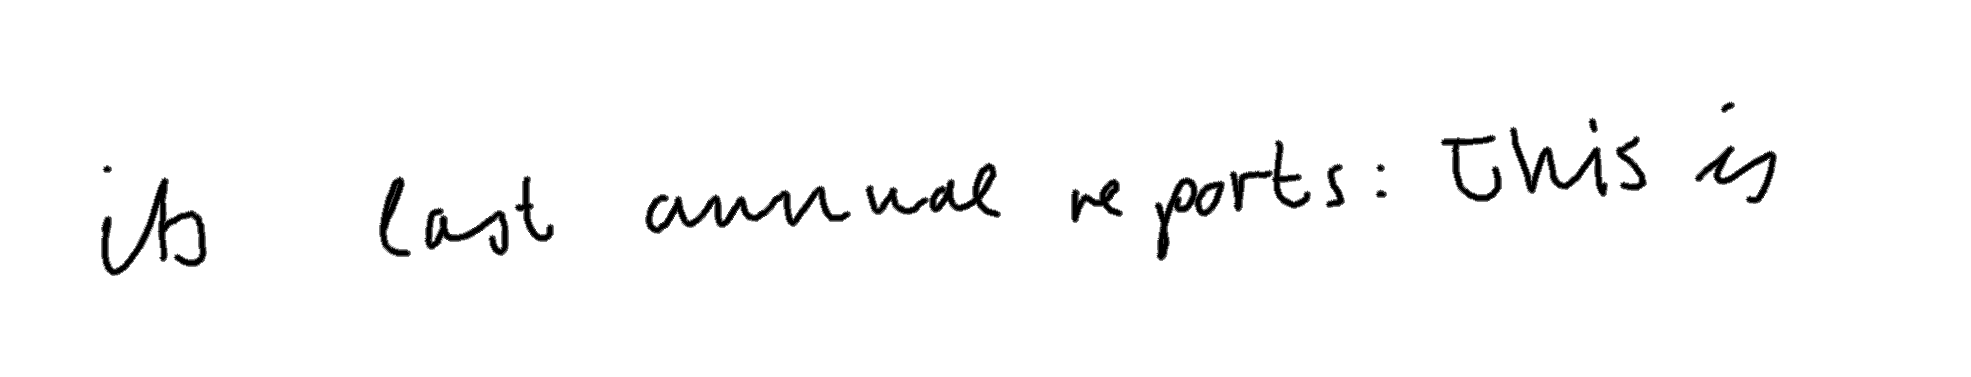 its last annual reports: This is